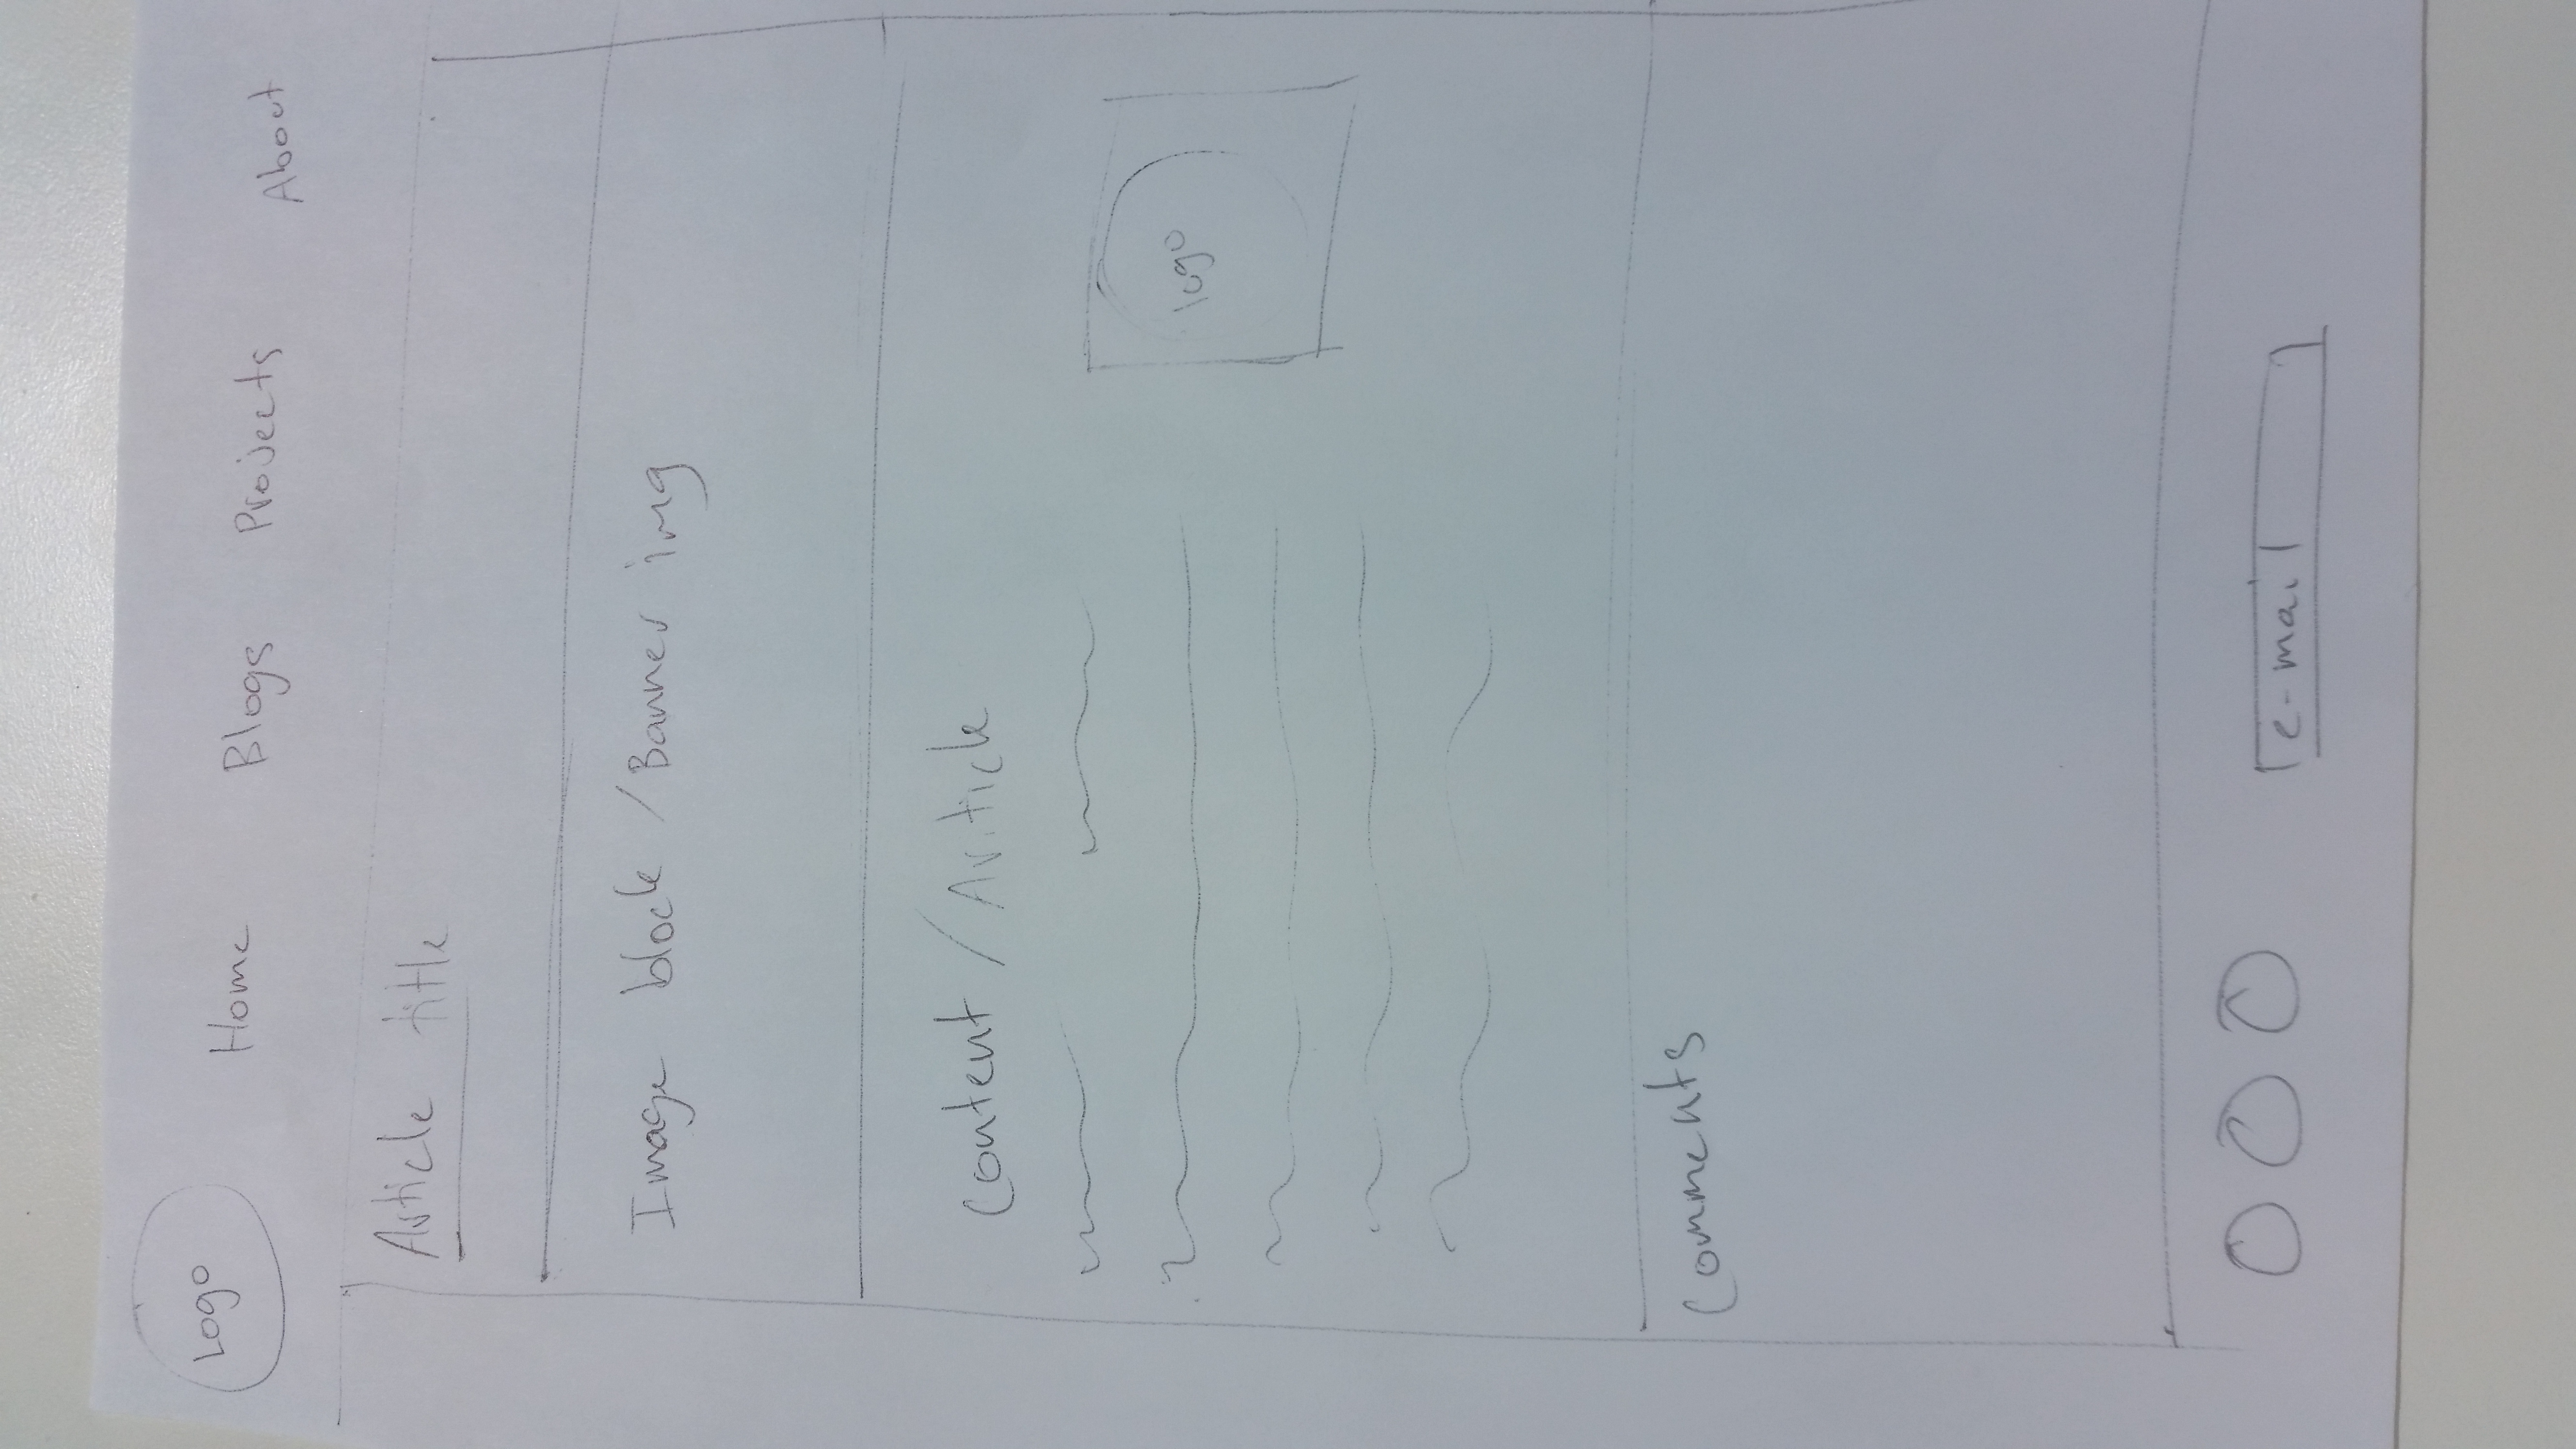 Logo Home Blogs Projects About
Article title
Image block / Banner img
Content / Article
logo
Comments
e-mail